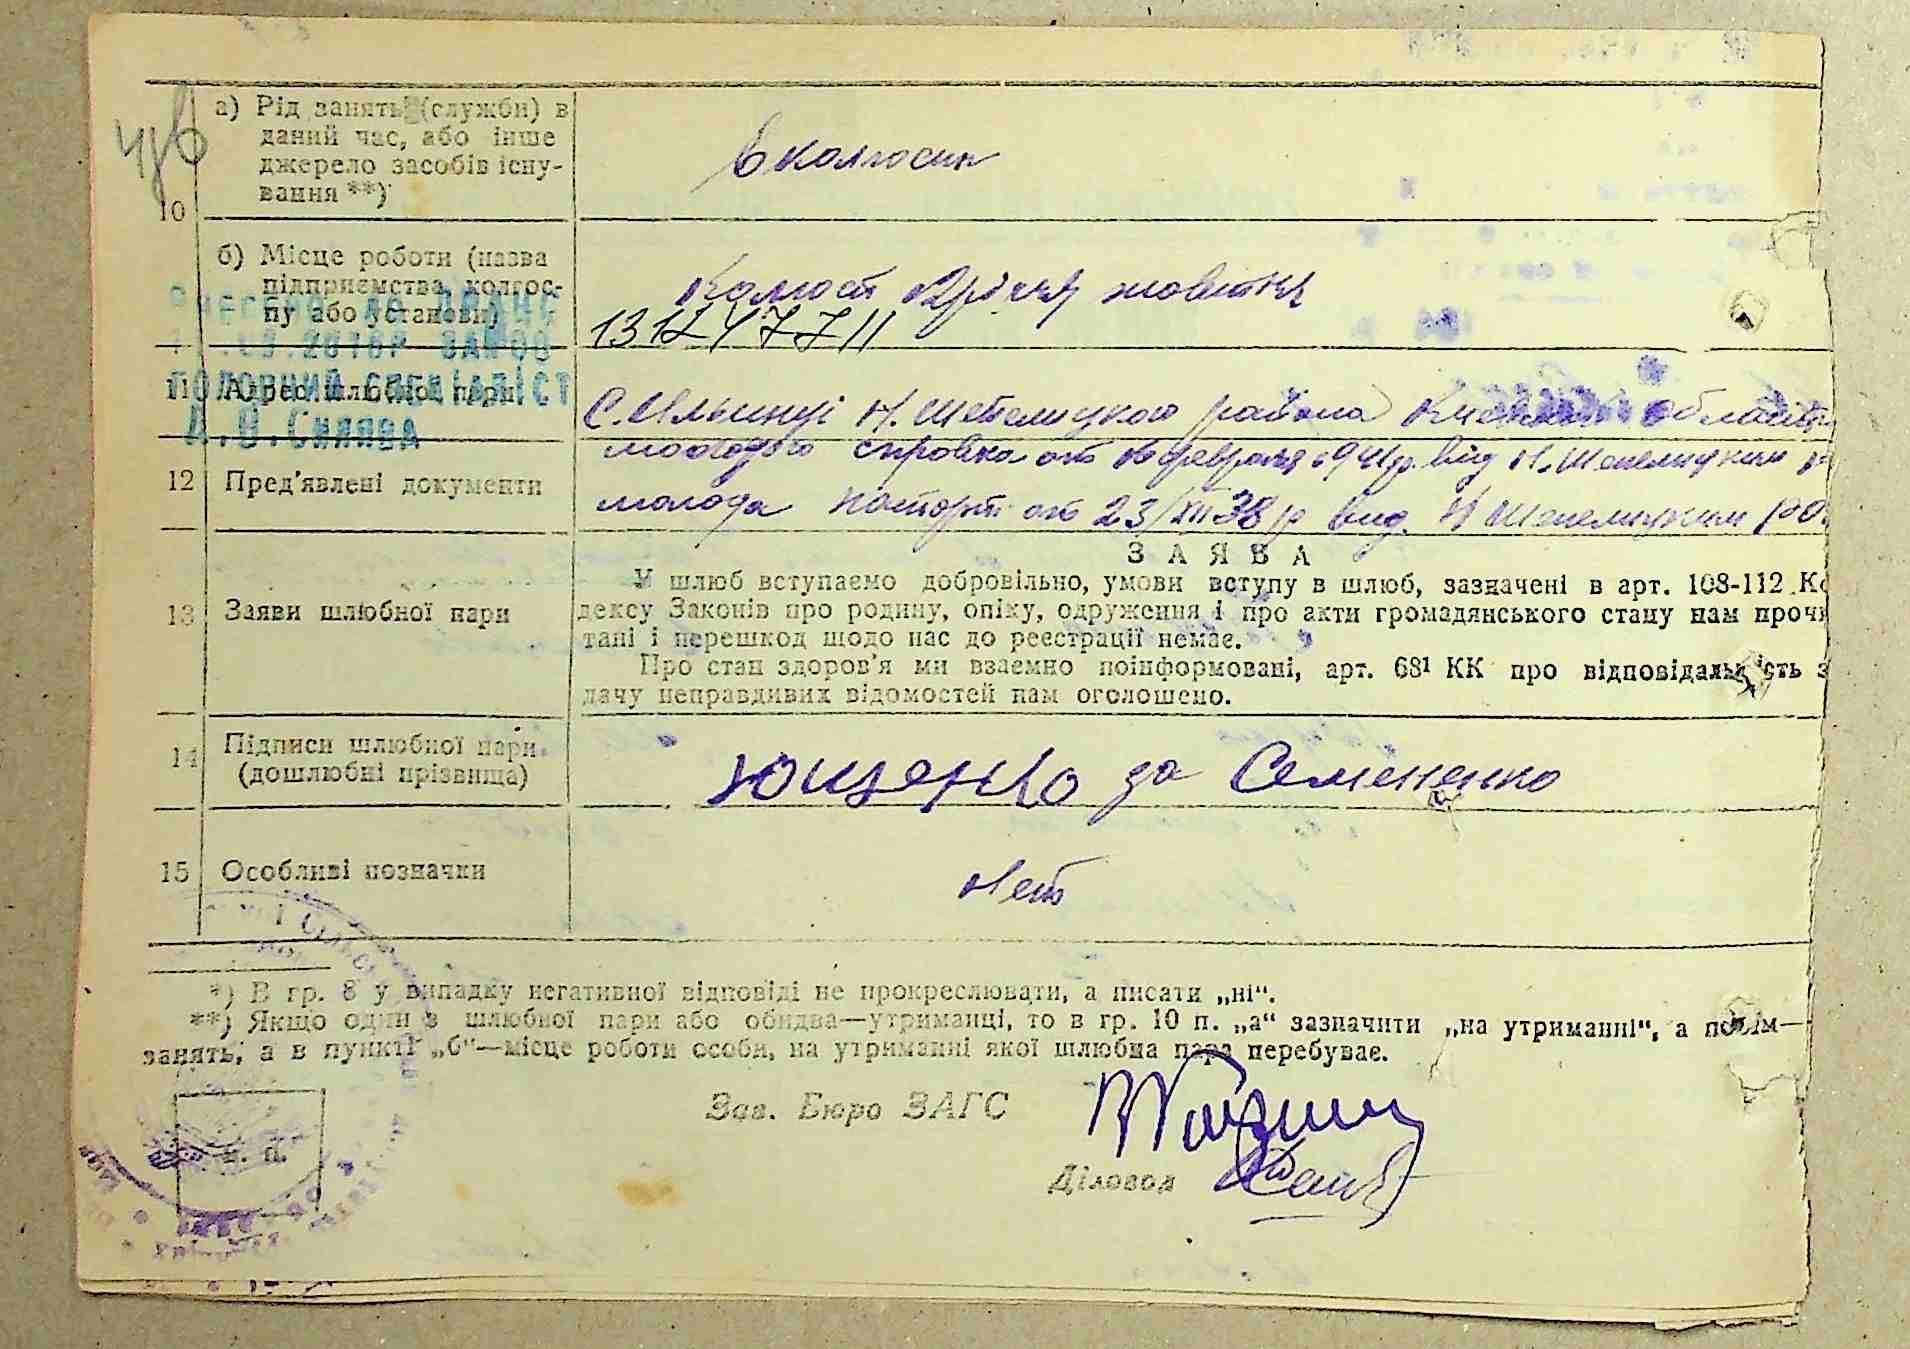 а) Рід занять (службн) в
даний час, або інше
джерело засобів існу-
вання **)
10
В колгоспі
б) Місце роботи (назва
підприємства, колгос-
пу або установи)
Колгосп річчя жовтня
1312477 11
ГОЛОВНИЙ СПЕЦІАЛІСТ
11 Адреса шлюбної пари
С. Ільинці Н. Шепелицкого района Киевской области
12 Пред'явлені документи
молодого справка от февраля 1941р. вид Н. Шепелицким
молода паспорт от 23/XII 38 р вид. Н Шепелицким РО
З А Я В А
13 Заяви шлюбної пари
У шлюб вступаємо добровільно, умови вступу в шлюб, зазначені в арт. 108-112 Ко
дексу Законів про родину, опіку, одруження і про акти громадянського стану нам прочи
тані і перешкод щодо нас до реєстрації немає.
Про стан здоров'я ми взаємно поінформовані, арт. 68¹ КК про відповідальність з
дачу неправдивих відомостей нам оголошено.
14 Підписи шлюбної пари
(дошлюбні прізвища)
Ющенко за Семененко
15 Особливі позначки
Нет
*) В гр. 8 у випадку негативної відповіді не прокреслювати, а писати „ні“.
**) Якщо один з шлюбної пари або обидва—утриманці, то в гр. 10 п. „а“ зазначити „на утриманні“, а потім—
занять, а в пункті „б“—місце роботи особи, на утриманні якої шлюбна пара перебуває.
Зав. Бюро ЗАГС
Діловод